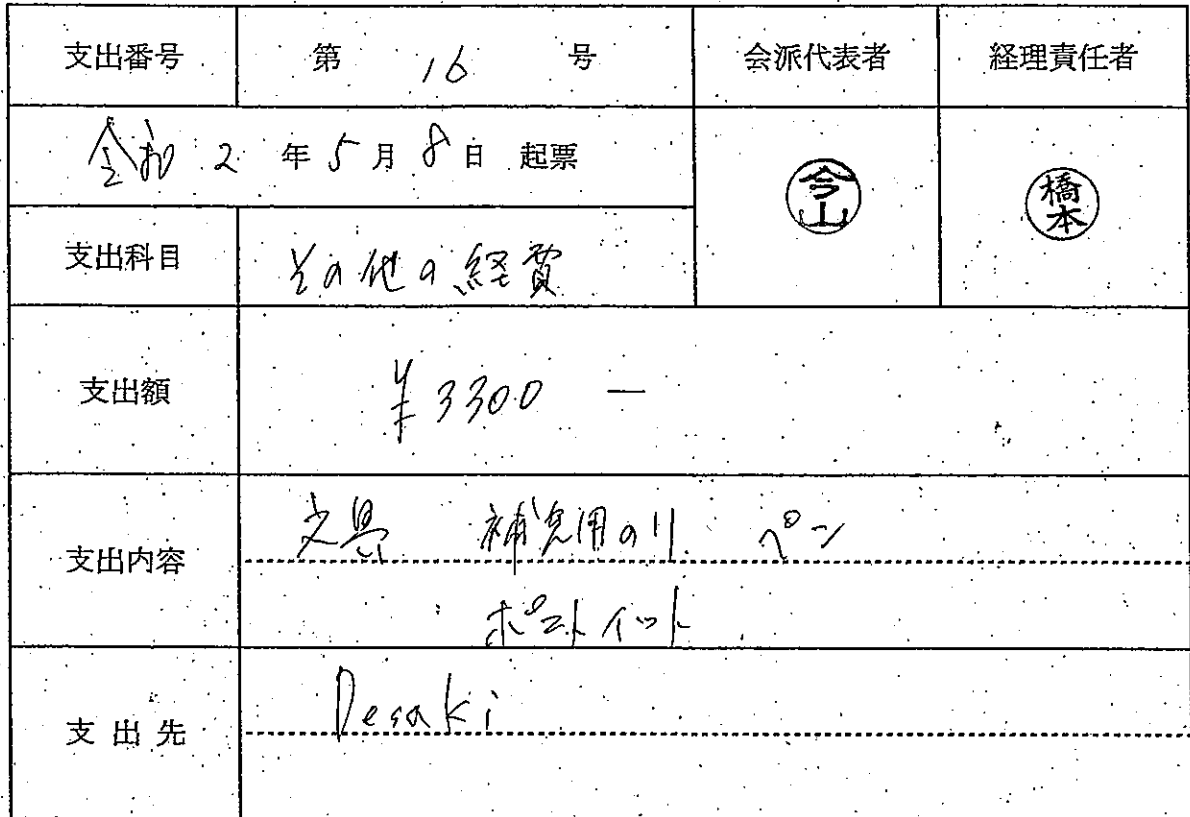 支出番号 第 16 号 会派代表者 経理責任者
令和 2 年 5 月 8 日 起票
今山 橋本
支出科目 その他の経費
支出額 ¥3300 ー
支出内容 文具 補充用のり ペン
ポストイット
支出先 Desaki